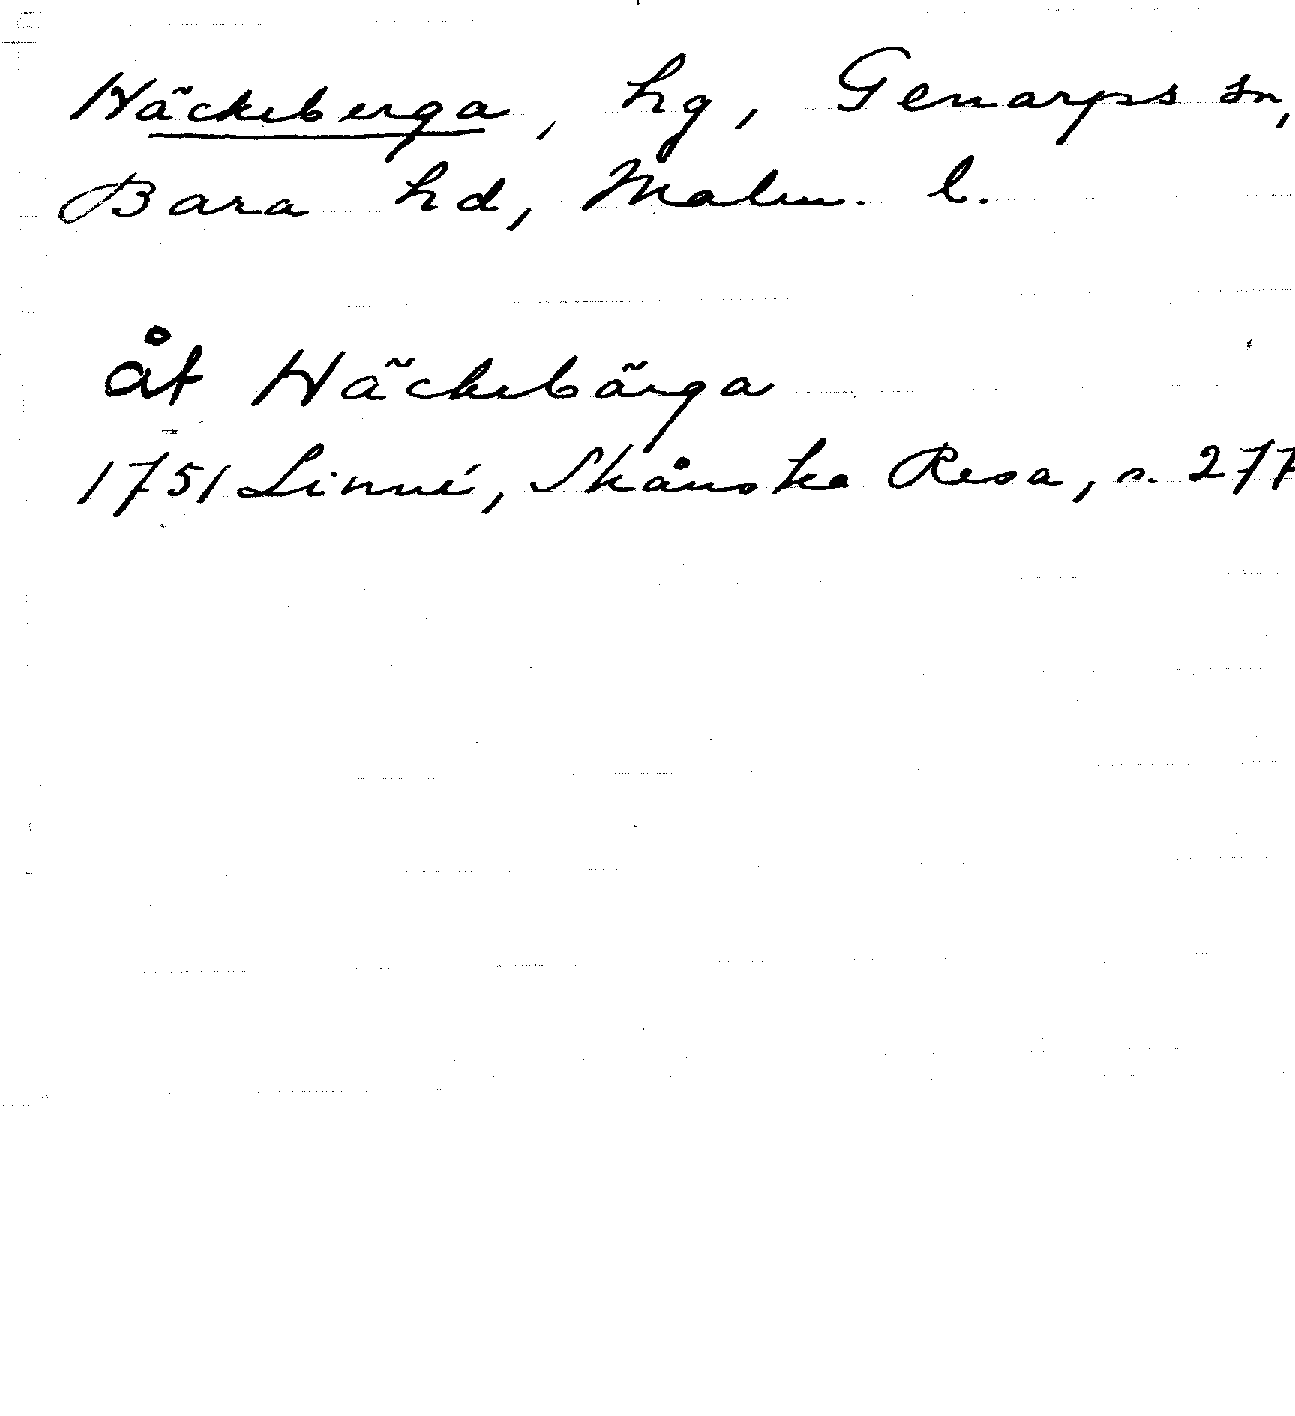 Häckeberga, hg, Genarps sn,
Bara hd, Malm. l.
åt Häckebärga
1751 Linné, Skånska Resa, s. 277